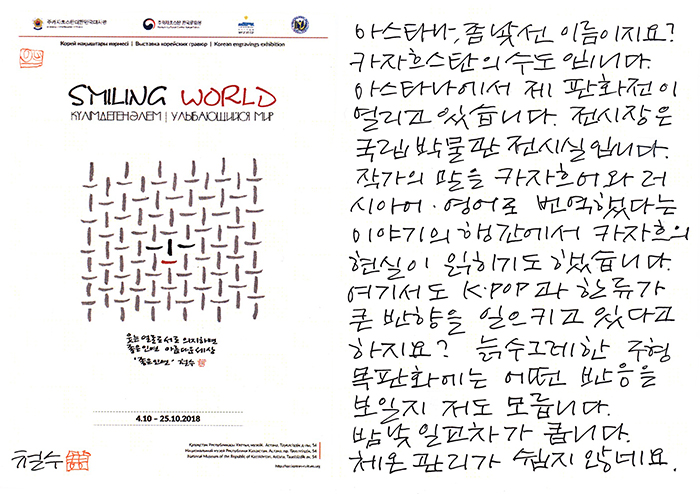 주카자흐스탄대한민국대사관
주카자흐스탄 한국문화원
Корей нақыштары көрмесі | Выставка корейских гравюр | Korean engravings exhibition
SMILING WORLD
КҮЛІМДЕГЕН ӘЛЕМ | УЛЫБАЮЩИЙСЯ МИР
웃는 얼굴로 서로 의지하면
좋은 인연 아름다운 세상
'좋은 인연' 철수
4.10 - 25.10.2018
Қазақстан Республикасы Ұлттық музейі, Астана, Тәуелсіздік д-лы, 54
Национальный музей Республики Казахстан, Астана, пр. Тәуелсіздік, 54
National Museum of the Republic of Kazakhstan, Astana, Tauelsizdik av., 54
철수
아스타나, 좀 낯선 이름이지요?
카자흐스탄의 수도입니다.
아스타나에서 제 판화전이
열리고 있습니다. 전시장은
국립박물관 전시실입니다.
작가의 말을 카자흐어와 러
시아어·영어로 번역했다는
이야기의 행간에서 카자흐의
현실이 읽히기도 했습니다.
여기서도 K·POP과 한류가
큰 반향을 일으키고 있다고
하지요? 늙수그레한 주형
목판화에는 어떤 반응을
보일지 저도 모릅니다.
밤낮 일교차가 큽니다.
체온 관리가 쉽지 않네요.